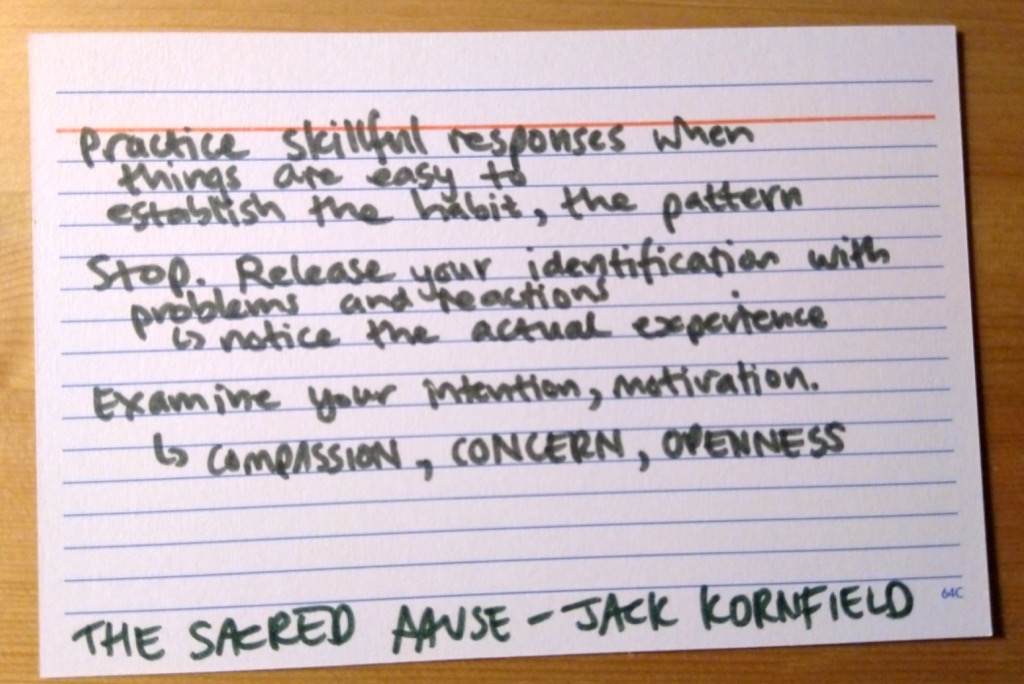 Practice skillful responses when
things are easy to
establish the habit, the pattern
Stop. Release your identification with
problems and reactions
↳ notice the actual experience
Examine your intention, motivation.
↳ COMPASSION, CONCERN, OPENNESS
64C
THE SACRED PAUSE - JACK KORNFIELD